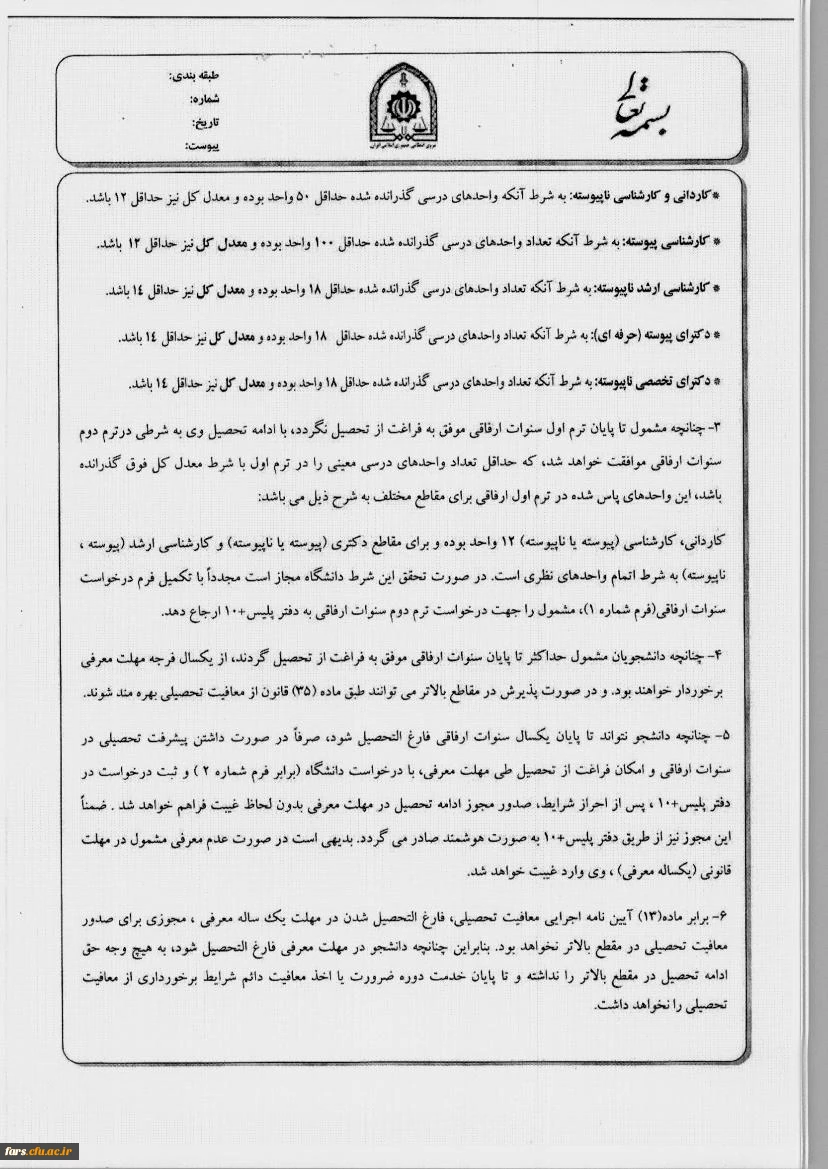 بسمه تعالی
طبقه بندی:
شماره:
تاریخ:
پیوست:
نیروی انتظامی جمهوری اسلامی ایران
*کاردانی و کارشناسی ناپیوسته: به شرط آنکه واحدهای درسی گذرانده شده حداقل ۵۰ واحد بوده و معدل کل نیز حداقل ۱۲ باشد.
* کارشناسی پیوسته: به شرط آنکه تعداد واحدهای درسی گذرانده شده حداقل ۱۰۰ واحد بوده و معدل کل نیز حداقل ۱۲ باشد.
* کارشناسی ارشد ناپیوسته: به شرط آنکه تعداد واحدهای درسی گذرانده شده حداقل ۱۸ واحد بوده و معدل کل نیز حداقل ۱۴ باشد.
* دکترای پیوسته (حرفه ای): به شرط آنکه تعداد واحدهای درسی گذرانده شده حداقل ۱۸ واحد بوده و معدل کل نیز حداقل ۱۴ باشد.
* دکترای تخصصی ناپیوسته: به شرط آنکه تعداد واحدهای درسی گذرانده شده حداقل ۱۸ واحد بوده و معدل کل نیز حداقل ۱۴ باشد.
۳- چنانچه مشمول تا پایان ترم اول سنوات ارفاقی موفق به فراغت از تحصیل نگردد، با ادامه تحصیل وی به شرطی درترم دوم
سنوات ارفاقی موافقت خواهد شد، که حداقل تعداد واحدهای درسی معینی را در ترم اول با شرط معدل کل فوق گذرانده
باشد، این واحدهای پاس شده در ترم اول ارفاقی برای مقاطع مختلف به شرح ذیل می باشد:
کاردانی، کارشناسی (پیوسته یا ناپیوسته) ۱۲ واحد بوده و برای مقاطع دکتری (پیوسته یا ناپیوسته) و کارشناسی ارشد (پیوسته ،
ناپیوسته) به شرط اتمام واحدهای نظری است. در صورت تحقق این شرط دانشگاه مجاز است مجدداً با تکمیل فرم درخواست
سنوات ارفاقی(فرم شماره ۱)، مشمول را جهت درخواست ترم دوم سنوات ارفاقی به دفتر پلیس+۱۰ ارجاع دهد.
۴- چنانچه دانشجویان مشمول حداکثر تا پایان سنوات ارفاقی موفق به فراغت از تحصیل گردند، از یکسال فرجه مهلت معرفی
برخوردار خواهند بود. و در صورت پذیرش در مقاطع بالاتر می توانند طبق ماده (۳۵) قانون از معافیت تحصیلی بهره مند شوند.
۵- چنانچه دانشجو نتواند تا پایان یکسال سنوات ارفاقی فارغ التحصیل شود، صرفاً در صورت داشتن پیشرفت تحصیلی در
سنوات ارفاقی و امکان فراغت از تحصیل طی مهلت معرفی، با درخواست دانشگاه (برابر فرم شماره ۲ ) و ثبت درخواست در
دفتر پلیس+۱۰ ، پس از احراز شرایط، صدور مجوز ادامه تحصیل در مهلت معرفی بدون لحاظ غیبت فراهم خواهد شد . ضمناً
این مجوز نیز از طریق دفتر پلیس+۱۰ به صورت هوشمند صادر می گردد. بدیهی است در صورت عدم معرفی مشمول در مهلت
قانونی (یکساله معرفی) ، وی وارد غیبت خواهد شد.
۶- برابر ماده(۱۳) آیین نامه اجرایی معافیت تحصیلی، فارغ التحصیل شدن در مهلت یک ساله معرفی ، مجوزی برای صدور
معافیت تحصیلی در مقطع بالاتر نخواهد بود. بنابراین چنانچه دانشجو در مهلت معرفی فارغ التحصیل شود، به هیچ وجه حق
ادامه تحصیل در مقطع بالاتر را نداشته و تا پایان خدمت دوره ضرورت یا اخذ معافیت دائم شرایط برخورداری از معافیت
تحصیلی را نخواهد داشت.
fars.cfu.ac.ir